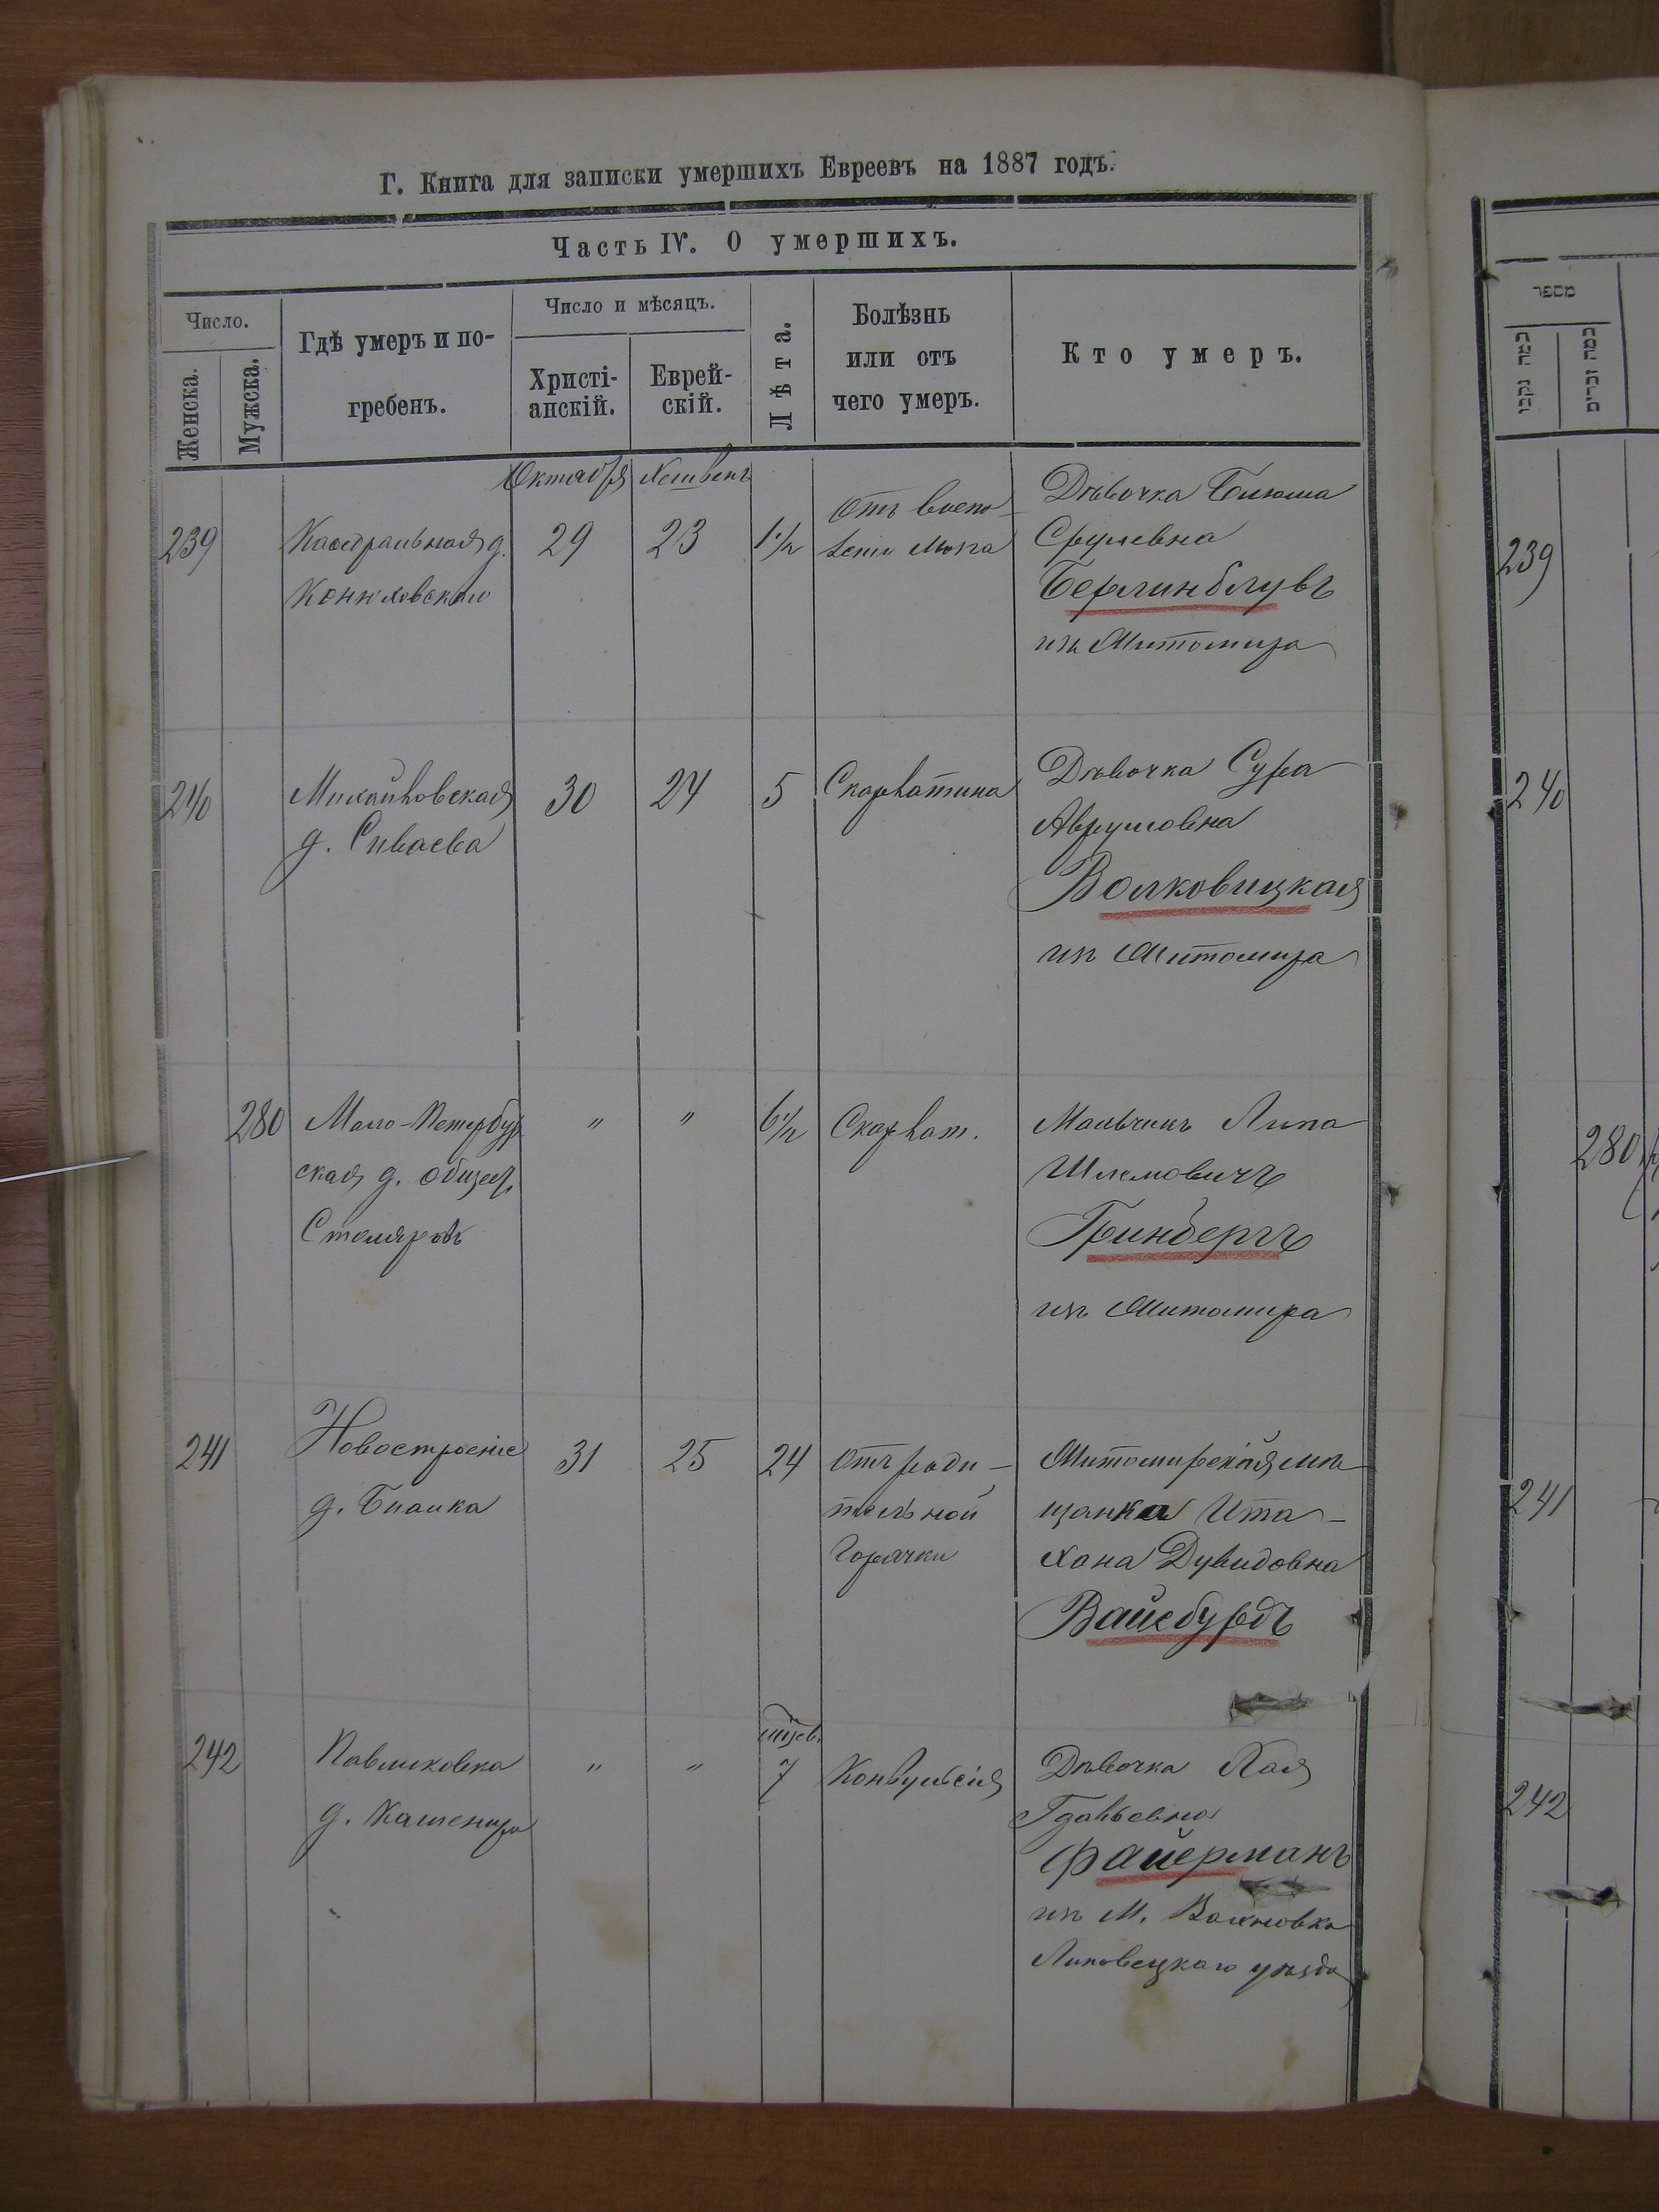 Г. Книга для записки умершихъ Евреевъ на 1887 годъ.
Часть IV. О умершихъ.
Число.
Женска.
Мужска.
Гдѣ умеръ и по-
гребенъ.
Число и мѣсяцъ.
Христі-
анскій.
Еврей-
скій.
Лѣта.
Болѣзнь
или отъ
чего умеръ.
Кто умеръ.
Октября Хешвенъ
239
Каѳедральная д.
29
23
1½
Отъ воспа-
Дѣвочка
Срулевна
Берлинблувъ
изъ Житомира
240
Михайловская
д. Сиваева
30
24
5
Скарлатина
Дѣвочка Сура
Аврумовна
Волковицкая
изъ Житомира
280
Мало-Петербур
ская д. общест.
Столяровъ
"
"
6½
Скарлат.
Мальчикъ Липа
Шлемовичъ
Гринбергъ
изъ Житомира
241
Новостроеніе
д. Бланка
31
25
24
Отъ роди-
тельной
горячки
Житомирская мѣ
щанка Ита-
Хана Дувидовна
Вайсбурдъ
242
Павликовка
"
"
7
Конвульсія
Дѣвочка Хая
Гдальевна
Файерманъ
изъ м. Вахновка
Липовецкаго уѣзда
מספר
כמה נקבו
כמה זכרים
239
240
280
241
242